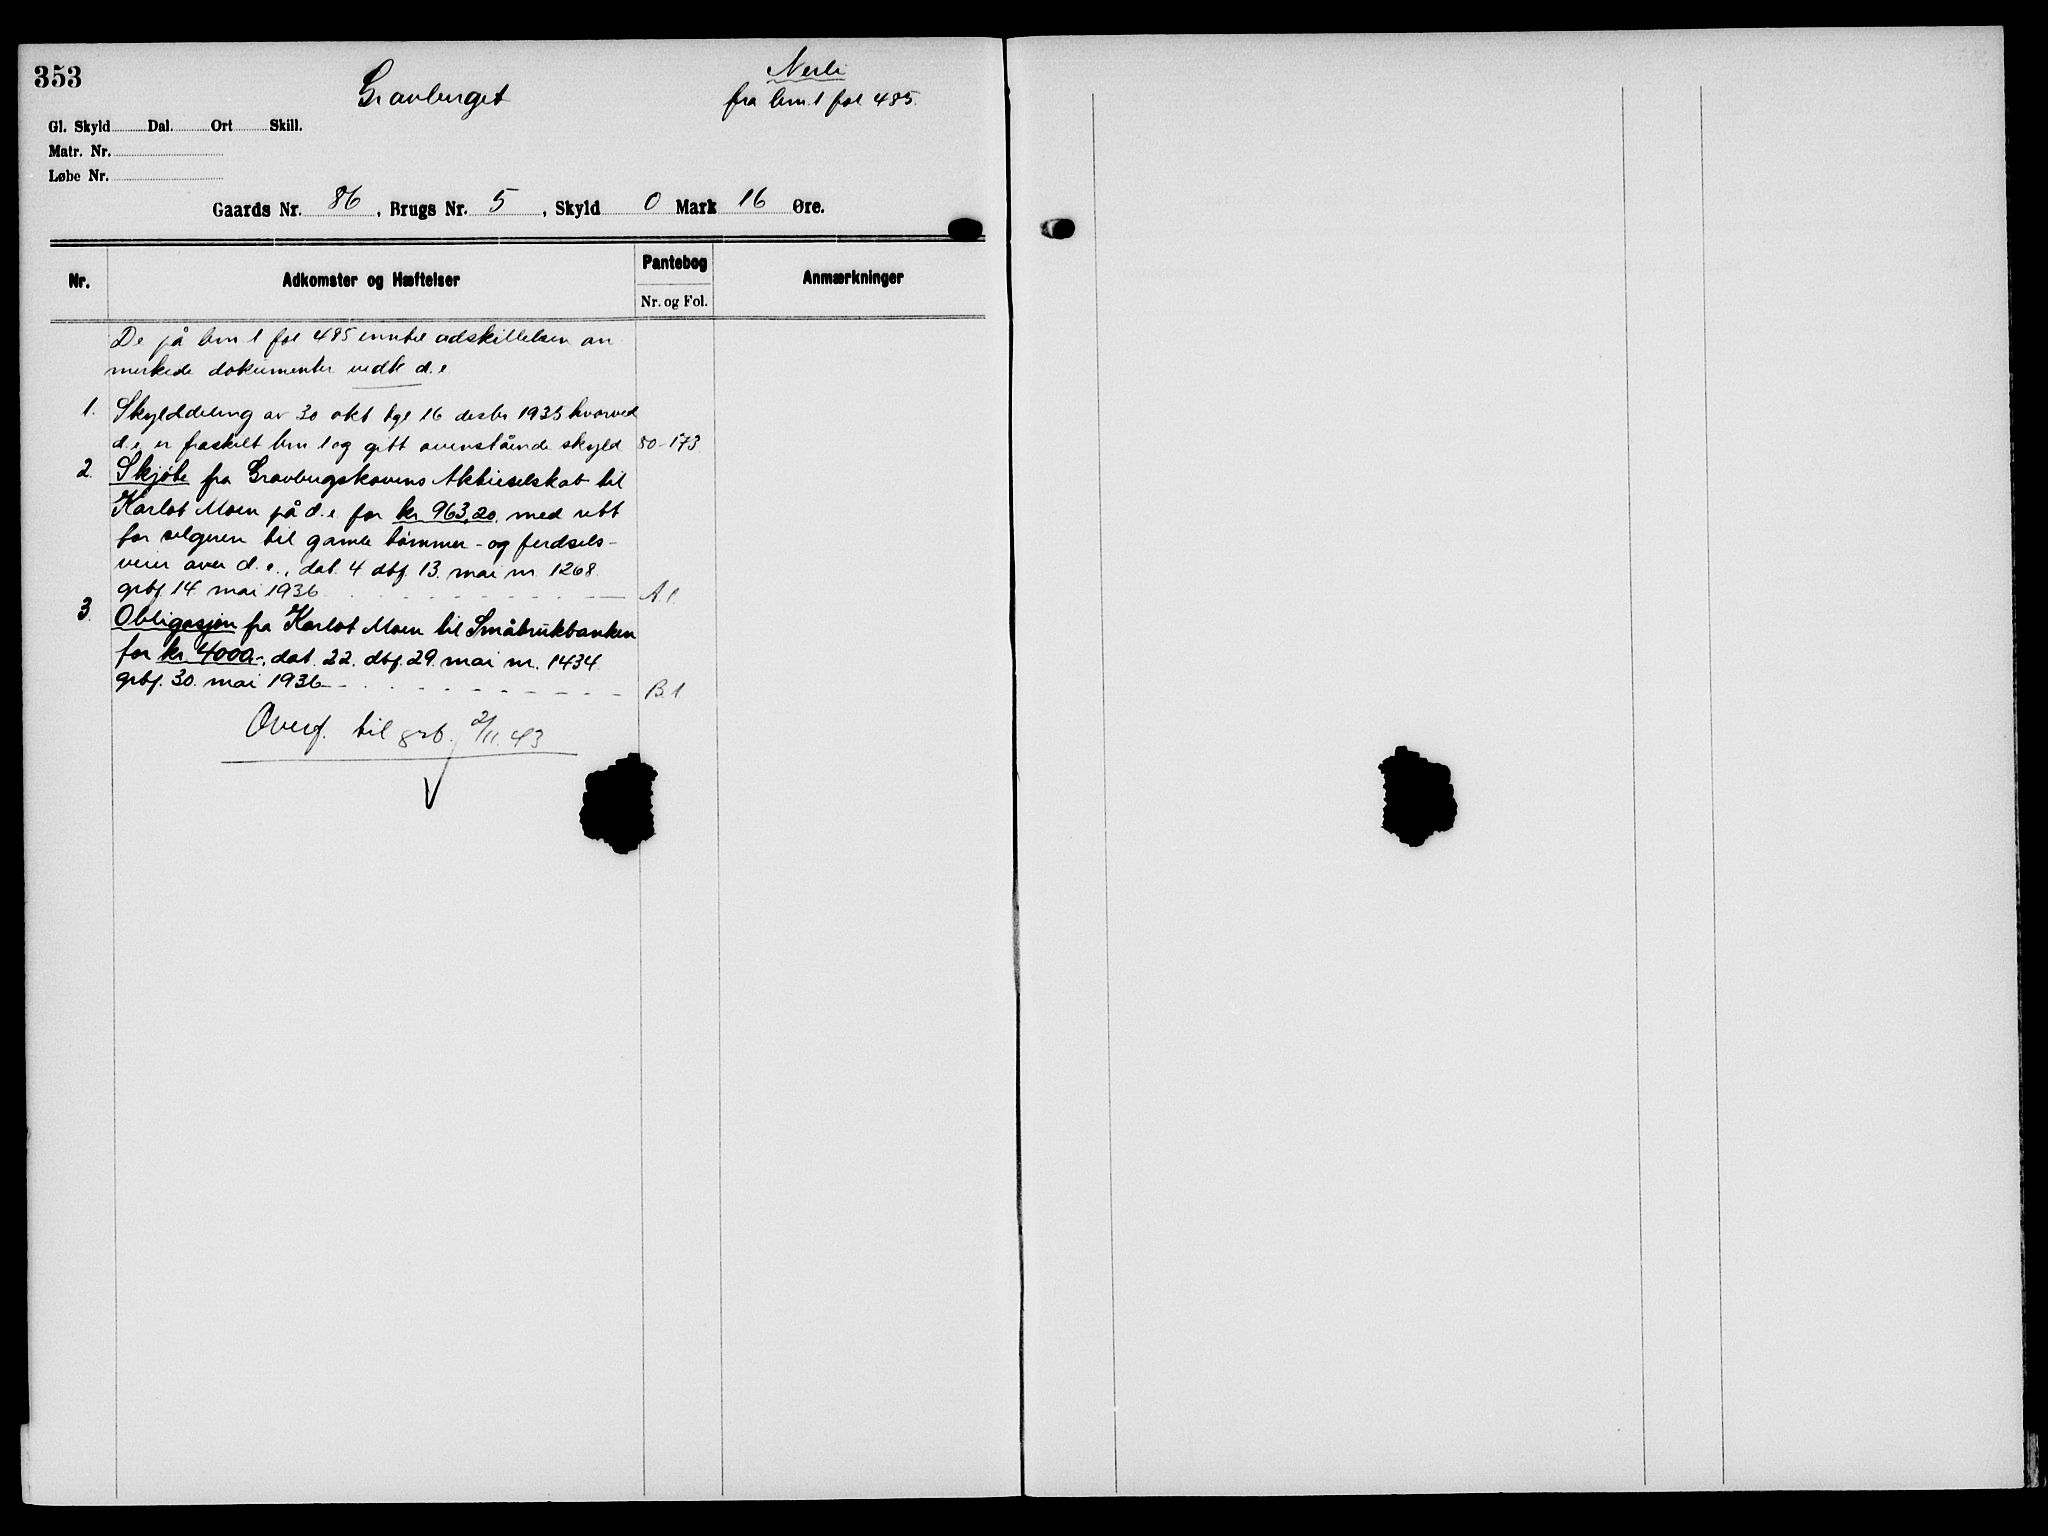 353
Gravberget
Nerli
fra brn. 1 fol 485.
Gl. Skyld Dal. Ort Skill.
Matr. Nr.
Løbe Nr.
Gaards Nr. 86, Brugs Nr. 5, Skyld 0 Mark 16 Øre.
Nr. Adkomster og Hæftelser Pantebog Anmærkninger
Nr. og Fol.
De på brn 1 fol 485 inntil adskillelsen an
merkede dokumenter vedk d.e
1. Skylddeling av 30 okt tgl 16 desbr 1935 hvorved
d.e. er fraskilt brn 1 og gitt ovenstående skyld 80-173.
2. Skjøte fra Gravbergskovens Aktieselskab til
Karlot Moen på d.e. for kr 963,20, med rett
for selgeren til gamle tømmer- og ferdsels-
veier over d.e., dat. 4 dbf. 13. mai nr. 1268.
grbf. 14. mai 1936 A.1.
3. Obligasjon fra Karlot Moen til Småbrukbanken
for kr. 4000.-, dat. 22. dbf. 29. mai nr. 1434.
grbf. 30. mai 1936 B.1.
Overf. til grb. 2/11.43